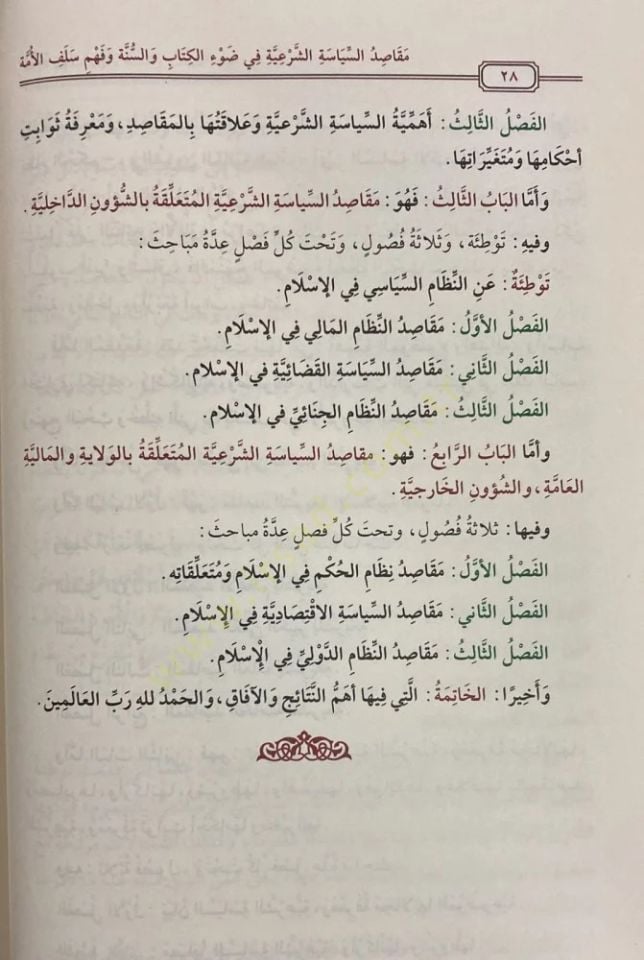 مَقَاصِدُ السِّيَاسَةِ الشَّرْعِيَّةِ فِي ضَوْءِ الكِتَابِ وَالسُّنَّةِ وَفَهْمِ سَلَفِ الأُمَّةِ
٢٨
الفَصْلُ الثَّالِثُ: أَهَمِّيَّةُ السِّيَاسَةِ الشَّرْعِيَّةِ وَعَلاقَتُهَا بِالمَقَاصِدِ، وَمَعْرِفَةُ ثَوَابِتِ
أَحْكَامِهَا وَمُتَغَيِّرَاتِهَا.
وَأَمَّا البَابُ الثَّالِثُ: فَهُوَ: مَقَاصِدُ السِّيَاسَةِ الشَّرْعِيَّةِ المُتَعَلِّقَةُ بِالشُّؤُونِ الدَّاخِلِيَّةِ.
وفيهِ: تَوْطِئَة، وَثَلَاثَةُ فُصُولٍ، وَتَحْتَ كُلِّ فَصْلٍ عِدَّةُ مَبَاحِثَ:
تَوْطِئَةٌ: عَنِ النِّظَامِ السِّيَاسِي فِي الإِسْلَامِ.
الفَصْلُ الأَوَّلُ: مَقَاصِدُ النِّظَامِ المَالِي فِي الإِسْلَامِ.
الفَصْلُ الثَّانِي: مَقَاصِدُ السِّيَاسَةِ القَضَائِيَّةِ فِي الإِسْلام.
الفَصْلُ الثَّالِثُ: مَقَاصِدُ النِّظَامِ الجِنَائِيِّ فِي الإِسْلام.
وأمَّا البَابُ الرَّابِعُ: فهو: مقاصِدُ السِّيَاسَةِ الشَّرْعِيَّةِ المُتَعَلِّقَةُ بالوِلايةِ والمَاليَّةِ
العَامَّةِ، والشُّؤونِ الخَارجيَّةِ.
وفيها: ثلاثةُ فُصُولٍ، وتحتَ كُلِّ فصلٍ عِدَّةُ مباحثَ:
الفَصْلُ الأوَّلُ: مَقَاصِدُ نِظَامِ الحُكْمِ فِي الإِسْلَامِ وَمُتَعَلِّقَاتِه.
الفَصْلُ الثَّاني: مَقَاصِدُ السِّيَاسَةِ الاقْتِصَادِيَّةِ فِي الإِسْلَامِ.
الفَصْلُ الثَّالِثُ: مَقَاصِدُ النِّظَامِ الدَّوْلِيِّ فِي الْإِسْلَامِ.
وَأَخِيرًا: الخَاتِمَةُ: الَّتِي فِيهَا أَهَمُّ النَّتَائِجِ وَالآفَاقِ، وَالحَمْدُ للهِ رَبِّ العَالَمِينَ.